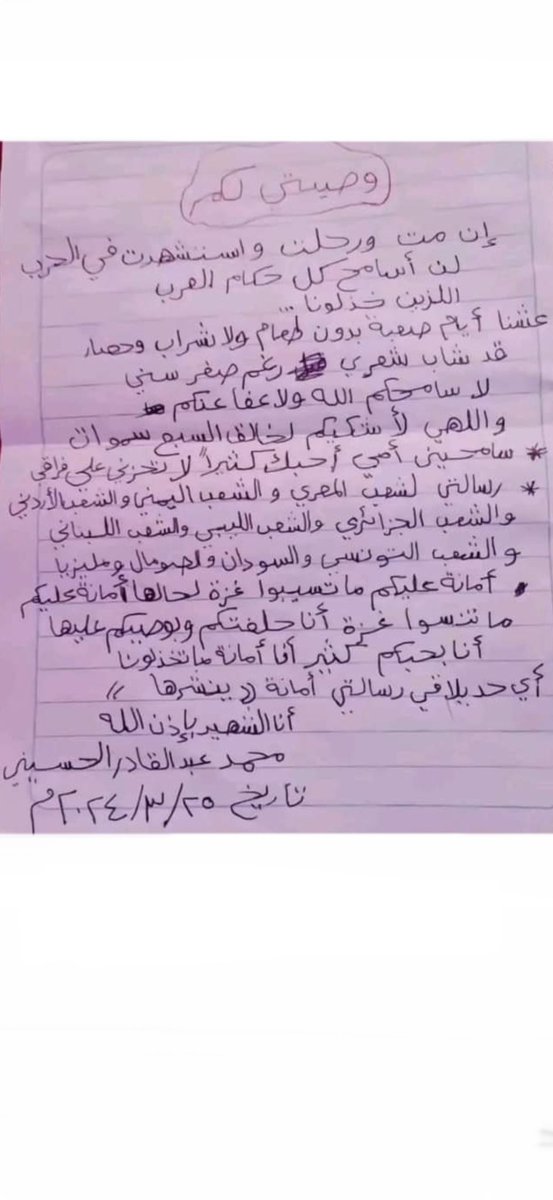 وصيتي لكم
إن مت ورحلت واستشهدت في الحرب
لن أسامح كل حكام العرب
اللزين خذلونا...
عشنا أيام صعبة بدون طعام ولا شراب وحصار
قد شاب شعري رغم صغر سني
لا سامحكم الله ولا عفا عنكم
واللهي لأشكيكم لخالق السبع سموات
* سامحيني أمي أحبك كثيراً لا تحزني على فراقي
* رسالتي لشعب المصري والشعب اليمني والشعب الأردني
والشعب الجزائري والشعب الليبي والشعب اللبناني
والشعب التونسي والسودان ولصومال ومليزيا
أمانة عليكم ما تسيبوا غزة لحالها أمانة عليكم
ما تنسوا غزة أنا حلفتكم وبوصيكم عليها
أنا بحبكم كثير أمانة ما تخذلونا
أي حد يلاقي رسالتي أمانة (( ينشرها ))
أنا الشهيد بإذن الله
محمد عبد القادر الحسيني
تاريخ ٢٠٢٤/٣/٢٥م